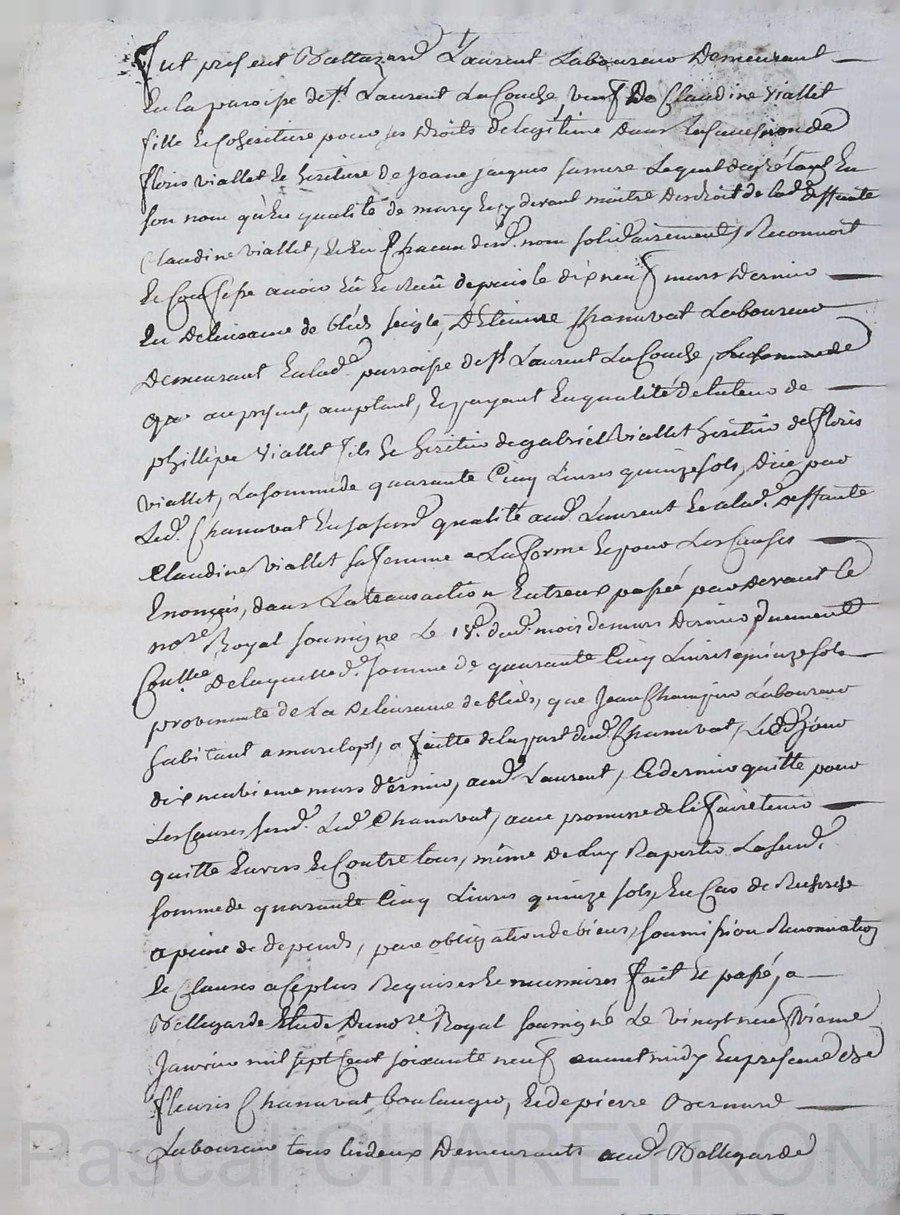 Fut present Baltazard Laurent Laboureur Demeurant
En la paroisse de St Laurent La Conche, veuf De Claudine Viallet
fille et cohéritiere pour ses droits de legitime dans la succession de
floris viallet et héritiere de Jeane jacques, Lequel en
son nom qu'En qualité de mary et cy devant maitre Des droit de lad. deffunte
Claudine viallet, et en Chacun desd. nom solidairement, Reconnoit
Et Confesse avoir Eû et reçû depuis le dix neuf mars Dernier
En Delivrance de bleds seigle, D'Etienne Chanavat Laboureur
Demeurant En lad. parroisse de St Laurent La Conche,
au present, acceptant, et payant En qualité de tuteur de
phillipe viallet fils et héritier de gabriel viallet heritier de floris
viallet, La somme de quarante Cinq Livres quinze sols, düe par
Led. Chanavat En sa susd. qualité aud. Laurent et a lad. deffunte
Claudine viallet sa femme a La forme et pour Les Causes
Enoncés, dans La transaction Entreux passée par devant le
nore Royal soussigné Le 18e dud. mois de mars Dernier duement
Conllée De laquelle d. somme de quarante Cinq Livres quinze sols
provenante de La Delivrance de bleds, que Jean Laboureur
habitant a marclopt, a faitte de la part dud. Chanavat, Led. jour
dix neuvieme mars dernier, aud. Laurent, Ce dernier quitte pour
Les Causes susd. Led. Chanavat, avec promesse de le faire tenir
quitte Envers et Contre tous, même De luy Raporter La susd.
somme de quarante Cinq Livres quinze sols, En Cas de Recherche
a peine de depends, par obligation de biens, soumission Renonciation
et Clauses a ce plus Requises et necessaires fait et passé, a
Bellegarde Etude du nore Royal soussigné Le vingt neuf vieme
Janvier mil sept Cent soixante neuf avant midy En presence de sr
fleuris Chanavat boulanger, et de pierre Bernard
Laboureur tous Les deux Demeurants aud. Bellegarde
Pascal CHAREYRON